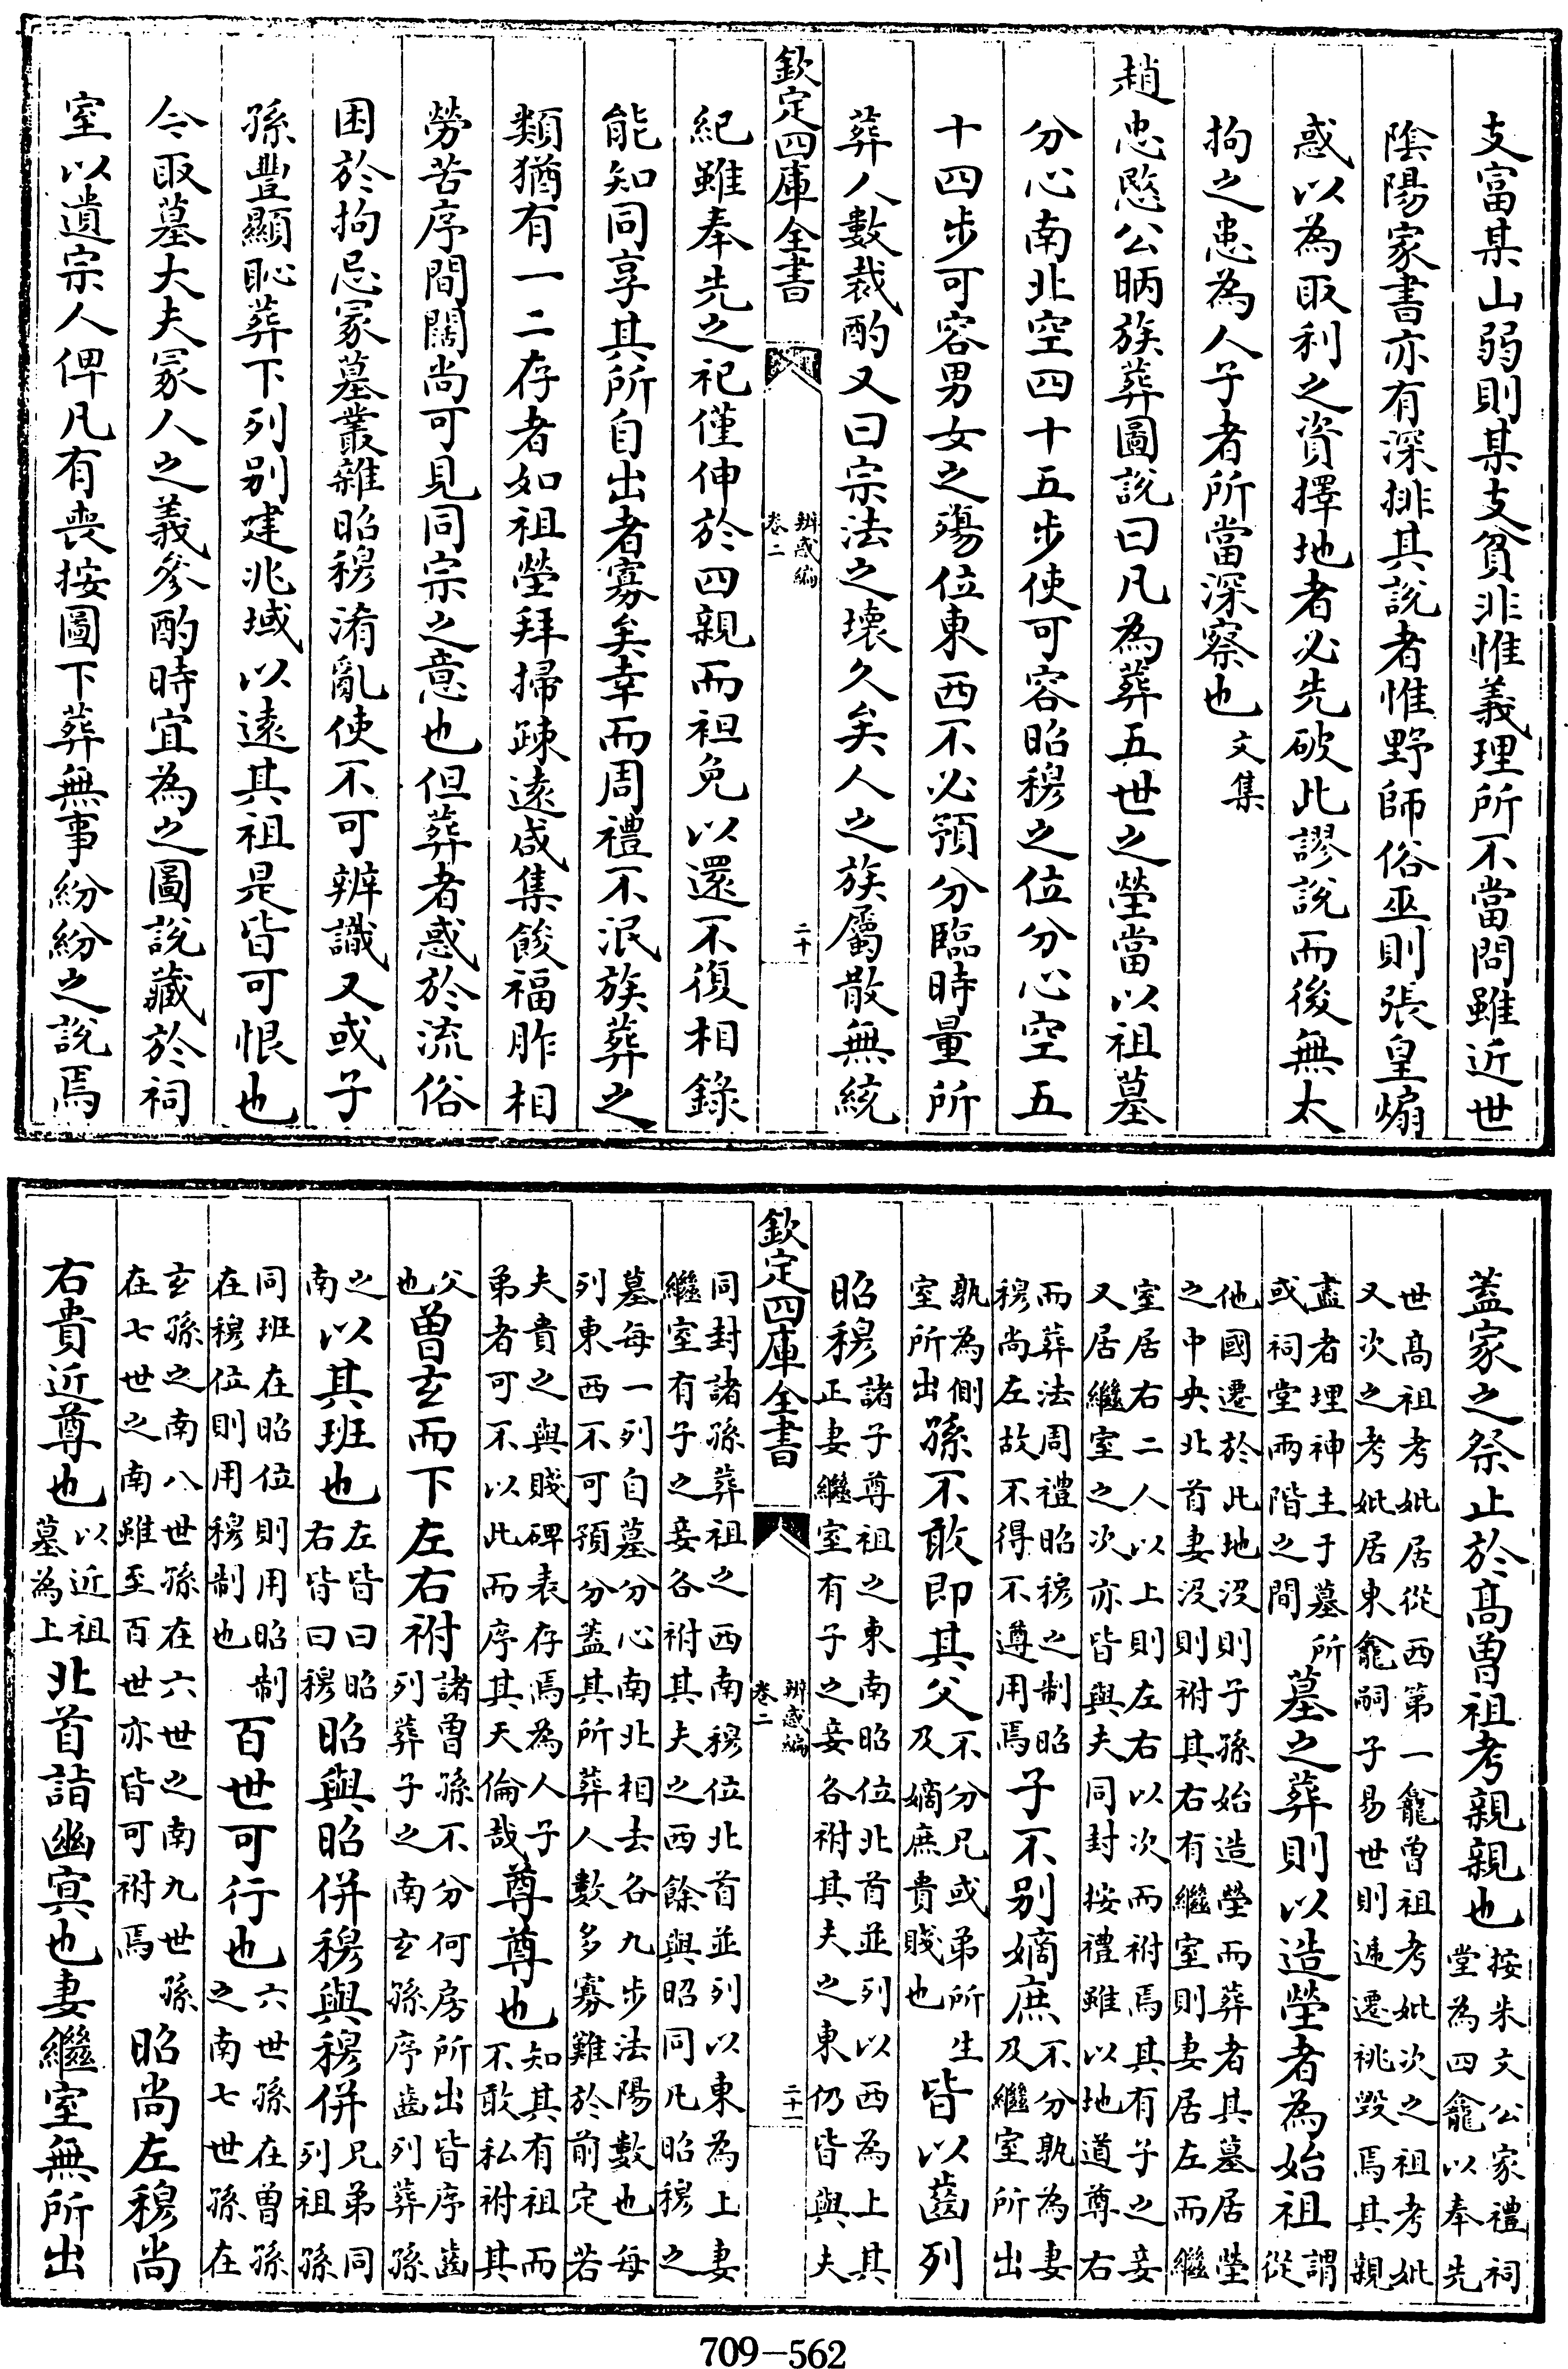 支富某山弱則某支貧非惟義理所不當問雖近世
陰陽家書亦有深排其說者惟野師俗巫則張皇煽
惑以為取利之資擇地者必先破此謬說而後無太
拘之患為人子者所當深察也文集
趙忠愍公昞族葬圖說曰凡為葬五世之塋當以祖墓
分心南北空四十五步使可容昭穆之位分心空五
十四步可容男女之殤位東西不必預分臨時量所
葬人數裁酌又曰宗法之壞久矣人之族屬散無統
欽定四庫全書 辨惑編 卷二 二十
紀雖奉先之祀僅伸於四親而袒免以還不復相錄
能知同享其所自出者寡矣幸而周禮不泯族葬之
類猶有一二存者如祖塋拜掃疎遠咸集餕福胙相
勞苦序間闊尚可見同宗之意也但葬者惑於流俗
困於拘忌冢墓叢雜昭穆淆亂使不可辨識又或子
孫豐顯恥葬下列别建兆域以遠其祖是皆可恨也
今取墓大夫冢人之義參酌時宜為之圖說藏於祠
室以遺宗人俾凡有喪按圖下葬無事紛紛之說焉
蓋家之祭止於髙曽祖考親親也 按朱文公家禮祠 堂為四龕以奉先
世髙祖考妣居從西第一龕曽祖考妣次之祖考妣 又次之考妣居東龕嗣子易世則遞遷祧毁焉其親
盡者埋神主于墓所 或祠堂兩階之間 墓之葬則以造塋者為始祖 謂 從
他國遷於此地没則子孫始造塋而葬者其墓居塋 之中央北首妻没則祔其右有繼室則妻居左而繼
室居右二人以上則左右以次而祔焉其有子之妾 又居繼室之次亦皆與夫同封按禮雖以地道尊右
而葬法周禮昭穆之制昭 穆尚左故不得不遵用焉 子不别嫡庶 不分孰為妻 及繼室所出
孰為側 室所出 孫不敢即其父 不分兄或弟所生 及嫡庶貴賤也 皆以齒列
昭穆 諸子尊祖之東南昭位北首並列以西為上其 正妻繼室有子之妾各祔其夫之東仍皆與夫
欽定四庫全書 辨惑編 卷二 二十一
同封諸孫葬祖之西南穆位北首並列以東為上妻 繼室有子之妾各祔其夫之西餘與昭同凡昭穆之
墓每一列自墓分心南北相去各九步法陽數也每 列東西不可預分蓋其所葬人數多寡難於前定若
夫貴之與賤碑表存焉為人子 弟者可不以此而序其天倫哉 尊尊也 知其有祖而 不敢私祔其
父 也 曽𤣥而下左右祔 諸曽孫不分何房所出皆序齒 列葬子之南𤣥孫序齒列葬孫
之 南 以其班也 左皆曰昭 右皆曰穆 昭與昭併穆與穆併 兄弟同 列祖孫
同班在昭位則用昭制 在穆位則用穆制也 百世可行也 六世孫在曽孫 之南七世孫在
𤣥孫之南八世孫在六世之南九世孫 在七世之南雖至百世亦皆可祔焉 昭尚左穆尚
右貴近尊也 以近祖 墓為上 北首詣幽冥也妻繼室無所出
709-562